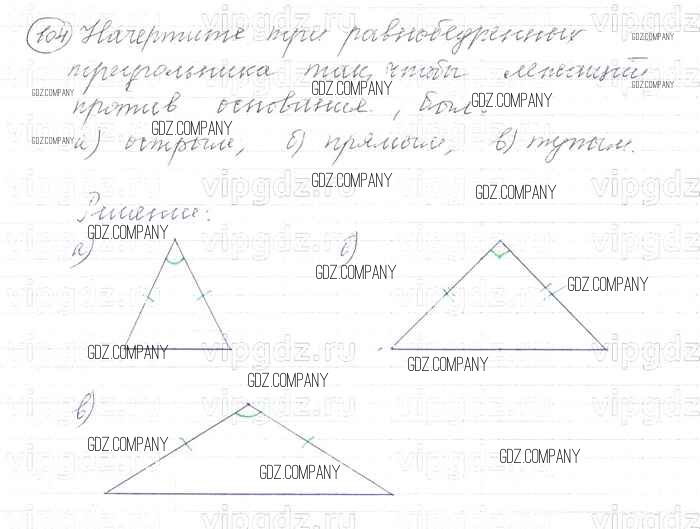 104 Начертите три равнобедренных
треугольника так, чтобы лежащий
против основания, был:
а) острым, б) прямым, в) тупым.
Решение:
а) б)
в)
GDZ.COMPANY
GDZ.COMPANY
GDZ.COMPANY
GDZ.COMPANY
GDZ.COMPANY
GDZ.COMPANY
GDZ.COMPANY
GDZ.COMPANY
GDZ.COMPANY
GDZ.COMPANY
GDZ.COMPANY
GDZ.COMPANY
GDZ.COMPANY
GDZ.COMPANY
GDZ.COMPANY
GDZ.COMPANY
GDZ.COMPANY
GDZ.COMPANY
GDZ.COMPANY
vipgdz.ru
vipgdz.ru
vipgdz.ru
vipgdz.ru